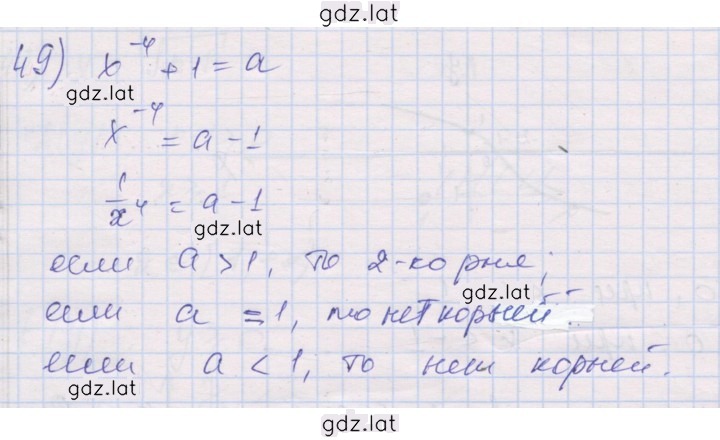 gdz.lat
49) x⁻⁴ + 1 = a
gdz.lat
x⁻⁴ = a - 1
1/x⁴ = a - 1
gdz.lat
если a > 1, то 2-корня;
gdz.lat
если a = 1, то нет корней.
если a < 1, то нет корней.
gdz.lat
gdz.lat